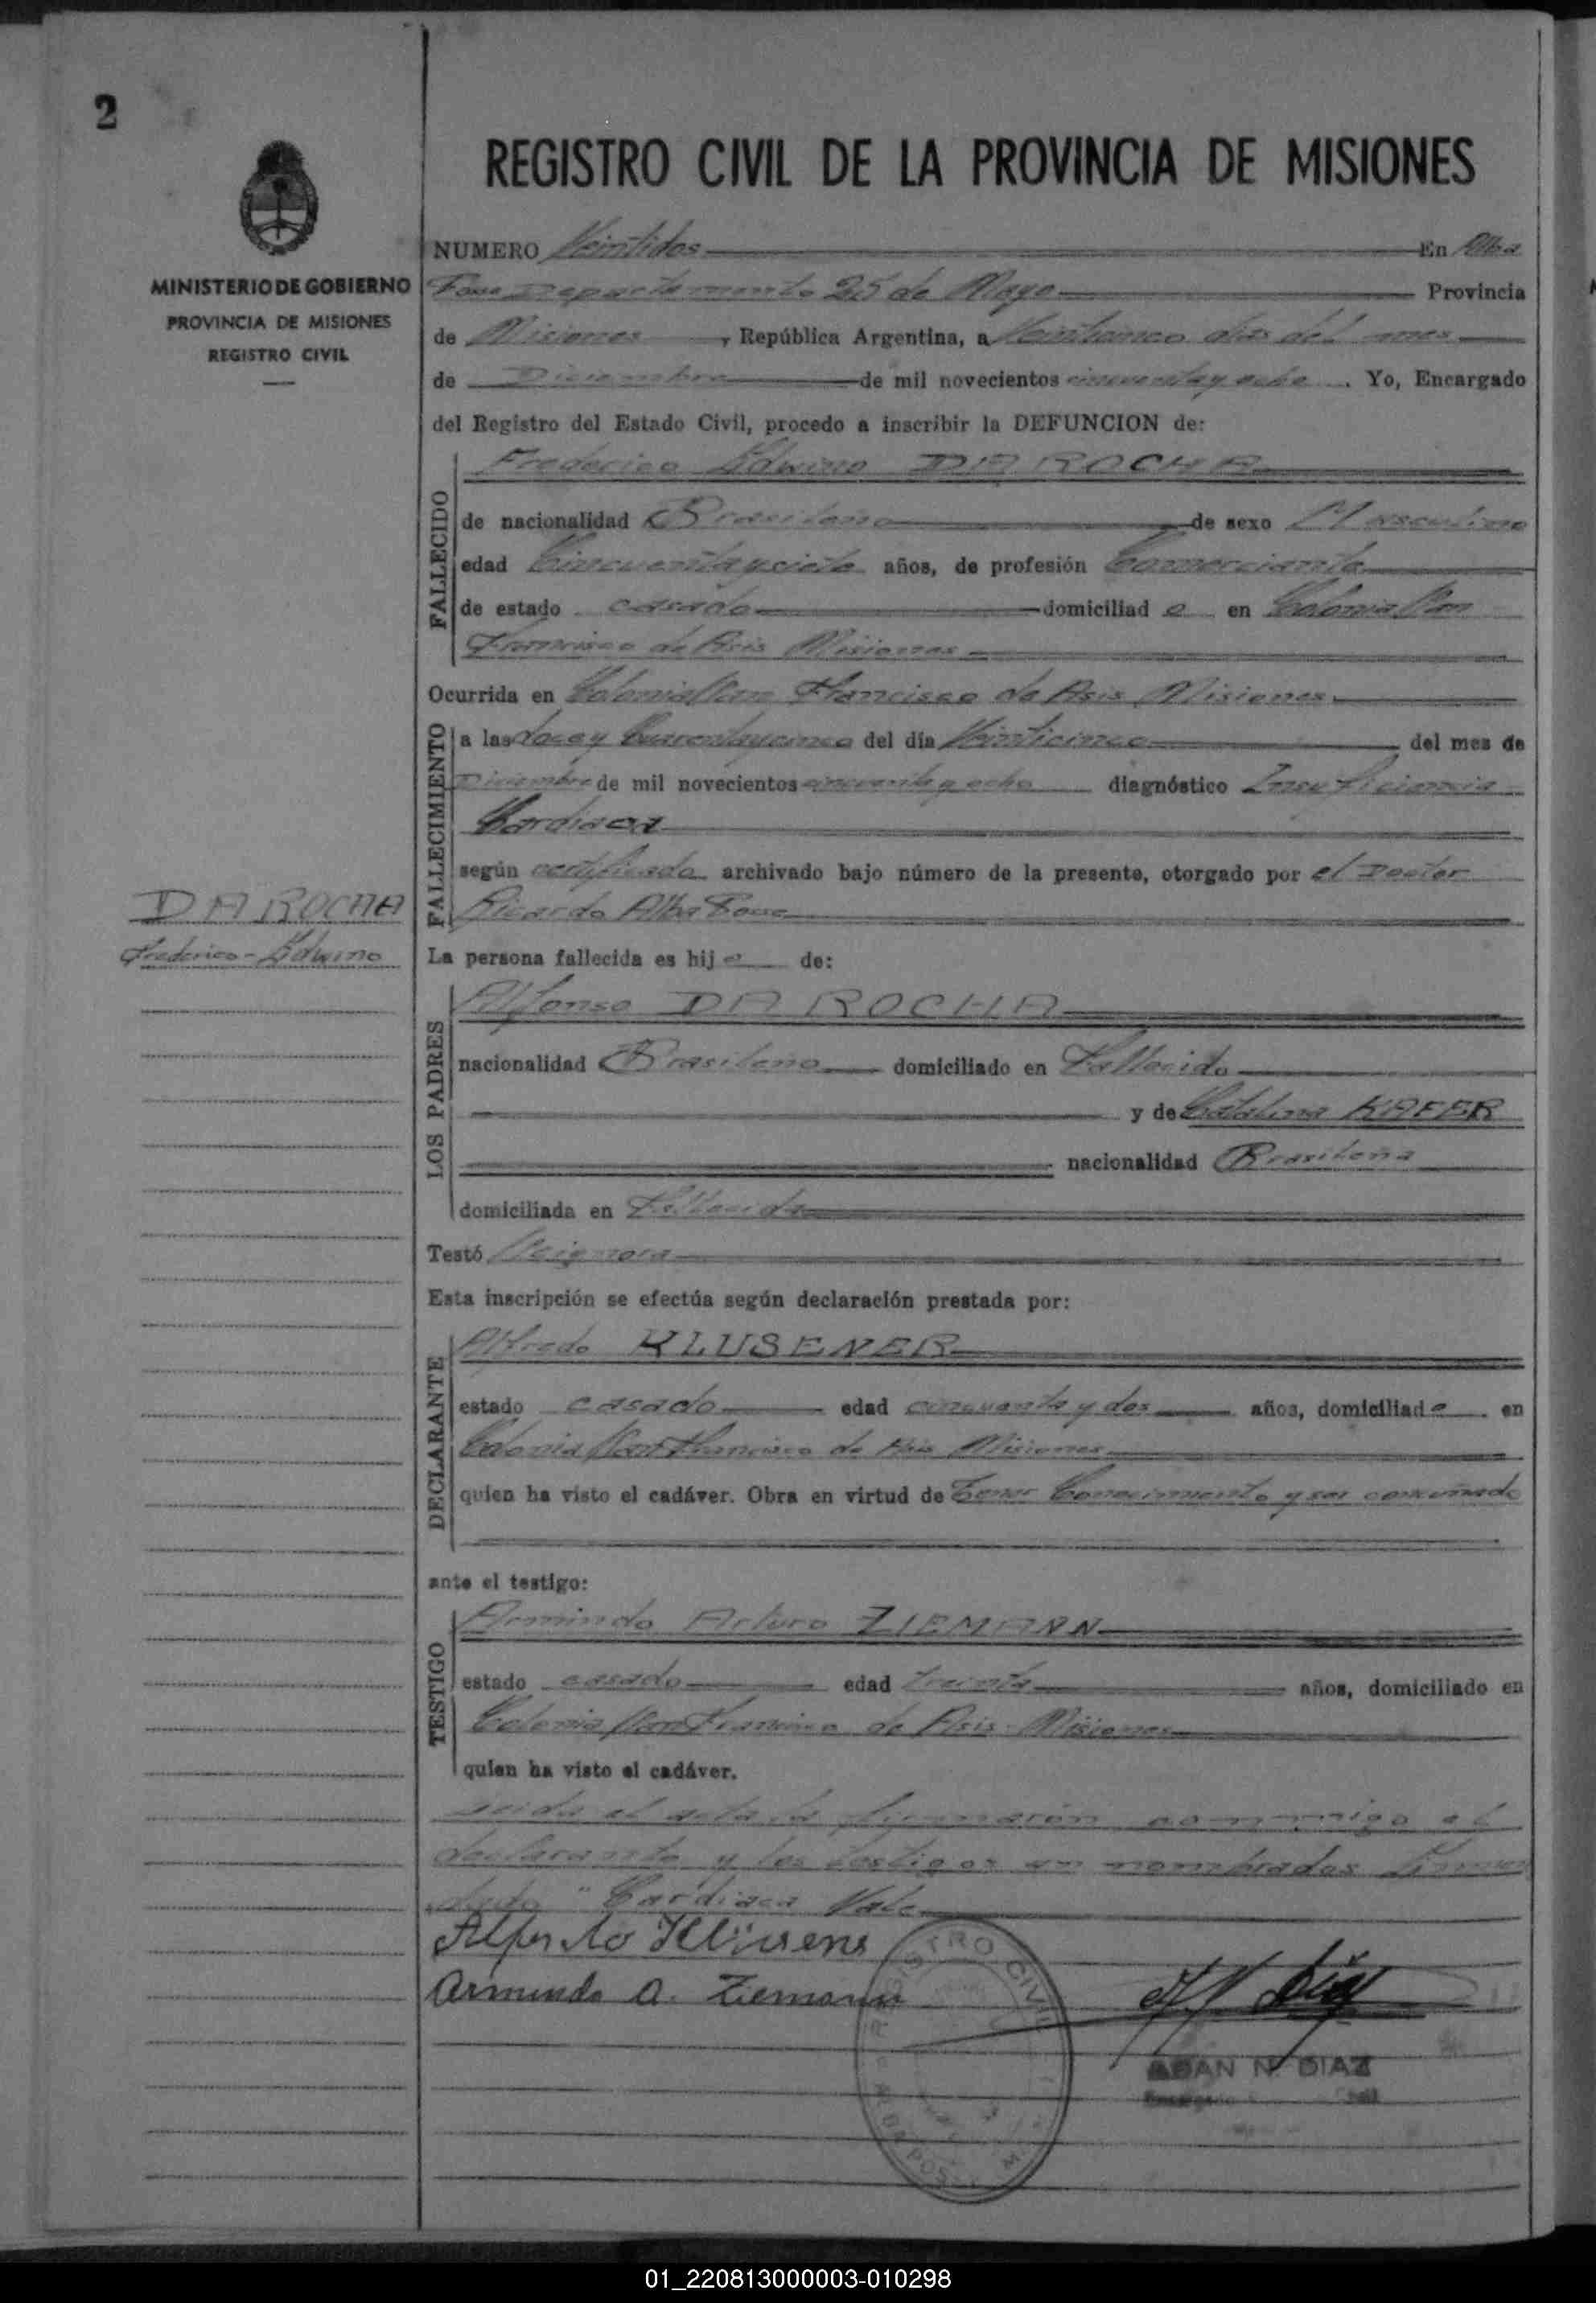 2
REGISTRO CIVIL DE LA PROVINCIA DE MISIONES
MINISTERIO DE GOBIERNO
PROVINCIA DE MISIONES
REGISTRO CIVIL
NUMERO Veintidos En Alba
Posse Departamento 25 de Mayo Provincia
de Misiones, República Argentina, a Veinticinco dias del mes
de Diciembre de mil novecientos cincuenta y ocho. Yo, Encargado
del Registro del Estado Civil, procedo a inscribir la DEFUNCION de:
Frederico Edwino DA ROCHA
FALLECIDO
de nacionalidad Brasileño de sexo Masculino
edad Cincuenta y ciete años, de profesión Comerciante
de estado casado domiciliad o en Colonia San
Francisco de Asis Misiones
Ocurrida en Colonia San Francisco de Asis Misiones
FALLECIMIENTO
a las doce y Cuarentaycinco del día Veinticinco del mes de
Diciembre de mil novecientos cincuenta y ocho diagnóstico Insuficiencia
Cardiaca
según certificado archivado bajo número de la presente, otorgado por el Doctor
Ricardo Alba Posse
DA ROCHA
Frederico - Edwino
La persona fallecida es hij o de:
LOS PADRES
Alfonso DA ROCHA
nacionalidad Brasileño domiciliado en Fallecido
y de Catalina KAFER
nacionalidad Brasileña
domiciliada en Fallecida
Testó Se ignora
Esta inscripción se efectúa según declaración prestada por:
DECLARANTE
Alfredo KLUSENER
estado casado edad cincuenta y dos años, domiciliado en
Colonia San Francisco de Asis Misiones
quien ha visto el cadáver. Obra en virtud de Tener Conocimiento y ser concuñado
ante el testigo:
TESTIGO
Armindo Arturo ZIEMANN
estado casado edad treinta años, domiciliado en
Colonia San Francisco de Asis Misiones
quien ha visto el cadáver.
Leida el acta la firmarón conmigo el
declarante y los testigos nombrados
"Cardiaca Vale
Armindo A. Ziemann
REGISTRO CIVIL
ADAN N. DIAZ
01_220813000003-010298